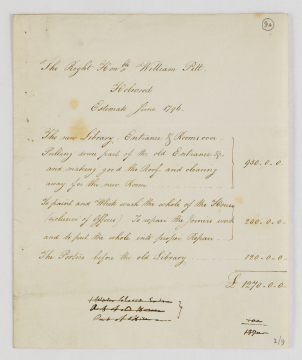 The Right Hon.ble William Pitt.
Holwood
Estimate June 1796.
The new Library - Entrance & Rooms over -
Pulling down part of the old Entrance &c
and making good the Roof, and clearing
away for the new Room
950.0.0.
To paint and White wash the whole of the House
(exclusive of Offices) To repair the Joiners work
and to put the whole into proper Repair -
200.0.0.
The Portico before the old Library
120.0.0.
£ 1270.0.0.
of old House
Out of Offices
100
1370
2/9